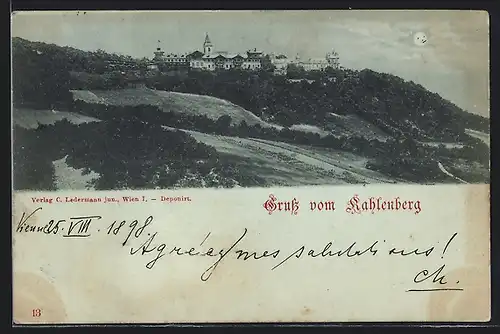 Verlag C. Ledermann jun., Wien I. – Deponirt.
Gruß vom Kahlenberg
Vienne 25. VIII. 1898.
Agréez mes salutations!
Ch.
13